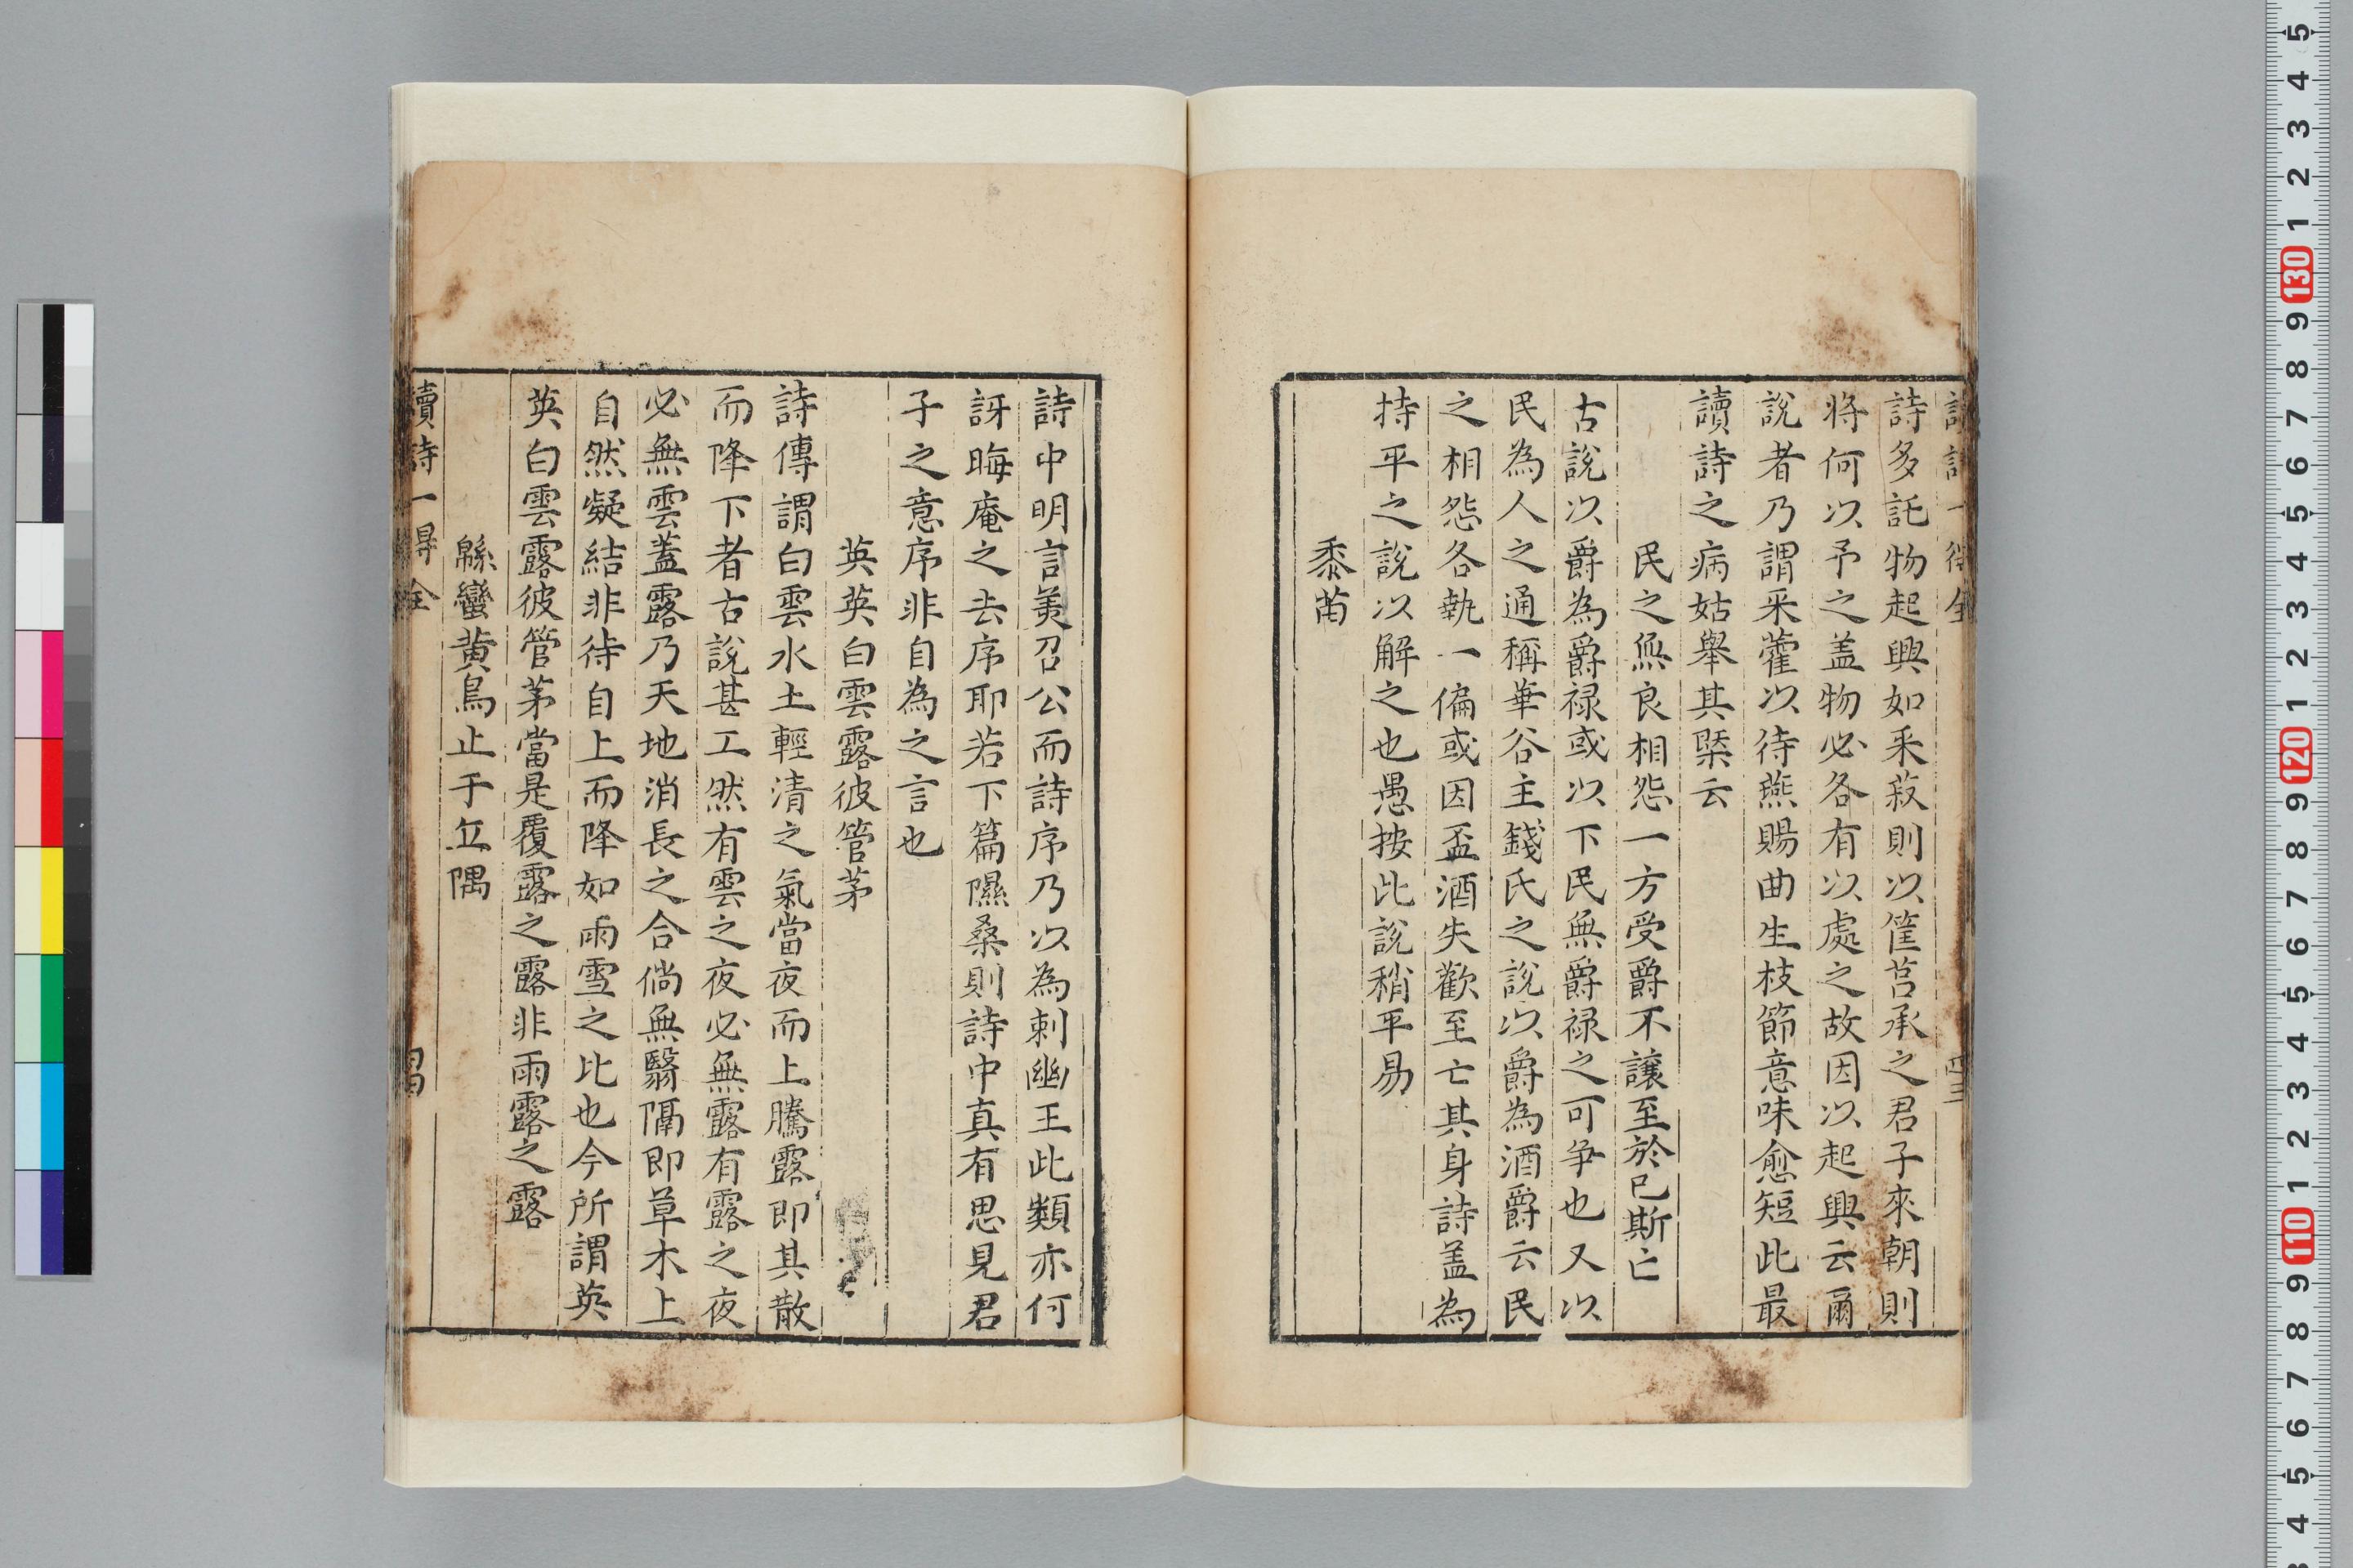 詩多託物起興如采菽則以筐莒承之君子來朝則
將何以予之盖物必各有以處之故因以起興云爾
說者乃謂采藿以待燕賜曲生枝節意味愈短此最
讀詩之病姑舉其槩云
民之無良相怨一方受爵不讓至於已斯亡
古說以爵為爵祿或以下民無爵祿之可爭也又以
民為人之通稱華谷主錢氏之說以爵為酒爵云民
之相怨各執一偏或因盃酒失歡至亡其身詩盖為
持平之說以解之也愚按此說稍平易
黍苗
詩中明言美召公而詩序乃以為刺幽王此類亦何
訝晦庵之去序耶若下篇隰桑則詩中真有思見君
子之意序非自為之言也
英英白雲露彼管茅
詩傳謂白雲水土輕清之氣當夜而上騰露即其散
而降下者古說甚工然有雲之夜必無露有露之夜
必無雲蓋露乃天地消長之合倘無翳隔即草木上
自然凝結非待自上而降如雨雪之比也今所謂英
英白雲露彼管茅當是覆露之露非雨露之露
緜蠻黄鳥止于丘隅
讀詩一得全